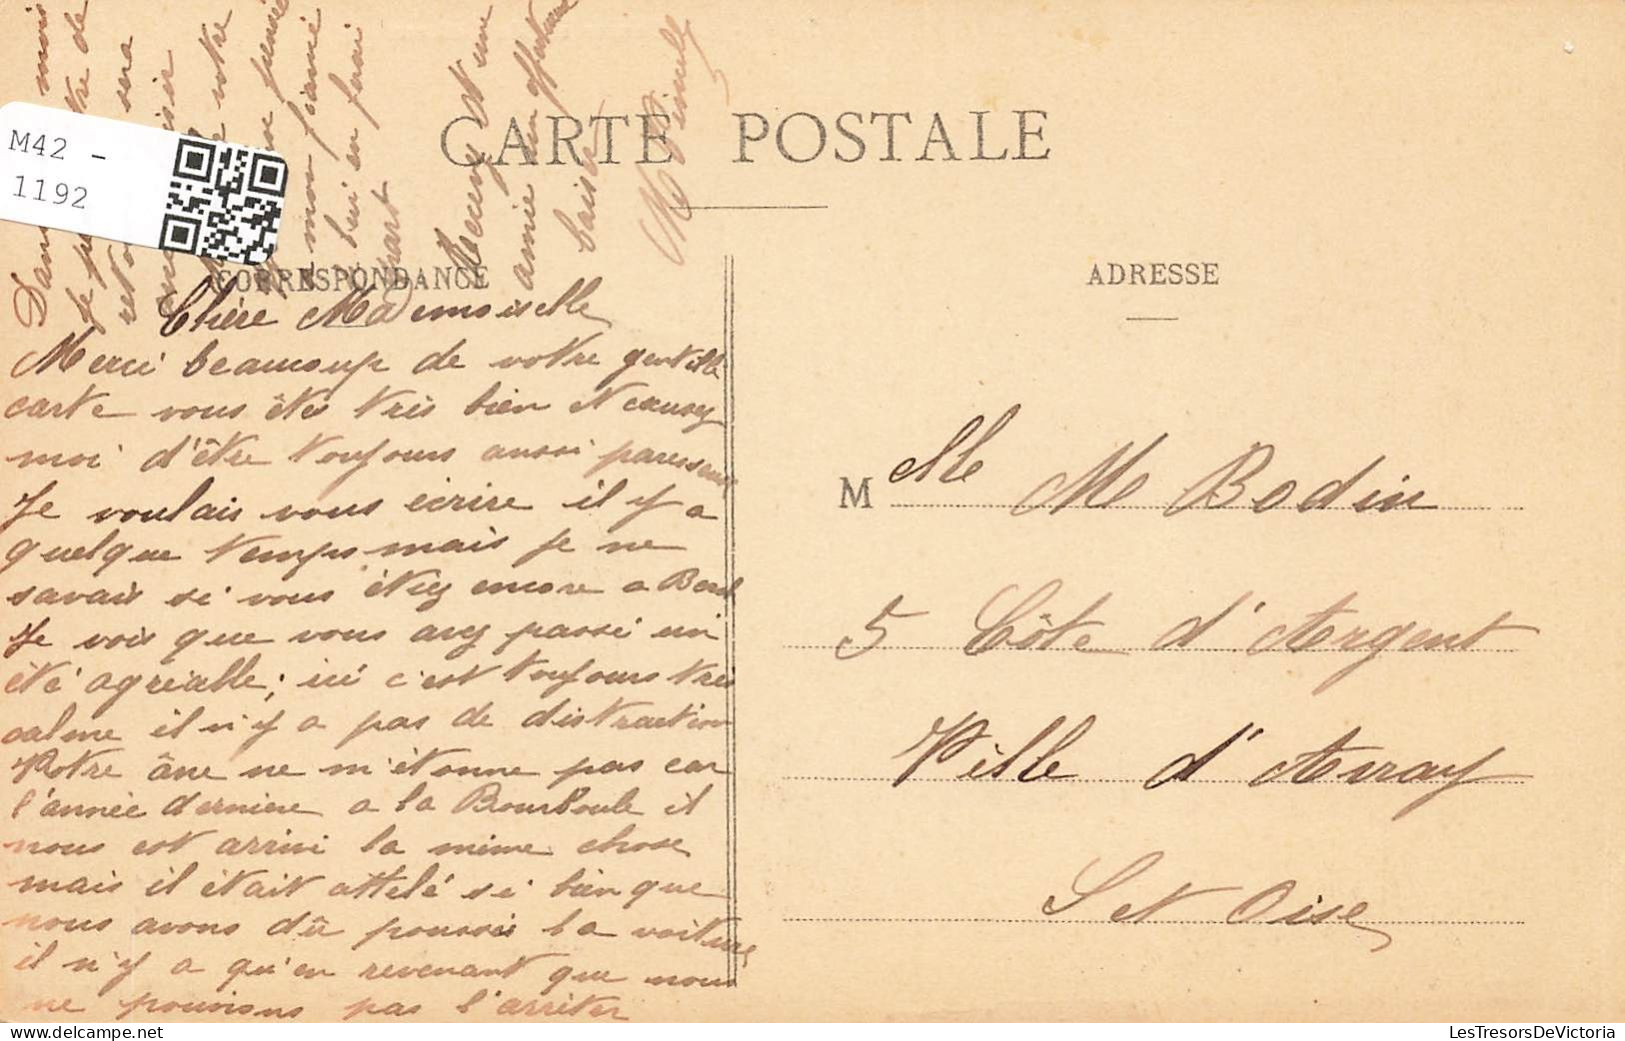 CARTE POSTALE
CORRESPONDANCE
ADRESSE
M42 -
1192
Chère Mademoiselle
Merci beaucoup de votre gentille
carte vous êtes très bien et causez
moi d'être toujours aussi paresseuse
Je voulais vous écrire il y a
quelque temps mais je ne
savais si vous étiez encore a
Je vois que vous avez passé un
été agréable; ici c'est toujours très
calme il n'y a pas de distraction
Votre âne ne m'étonne pas car
l'année dernière a la Bourboule il
nous est arrivé la même chose
mais il était attelé si bien que
nous avons dû pousser la voiture
il n'y a qu'en revenant que nous
ne pouvions pas l'arrêter
Dans mois
Je tre de
reto sera
votre
pensée
a mon fiancé
lui en ferai
part
Recevez et une
amie un affectueux
baiser
M
Melle M Bodin
5 Côte d'Argent
Ville d'Avray
S et Oise
LesTresorsDeVictoria